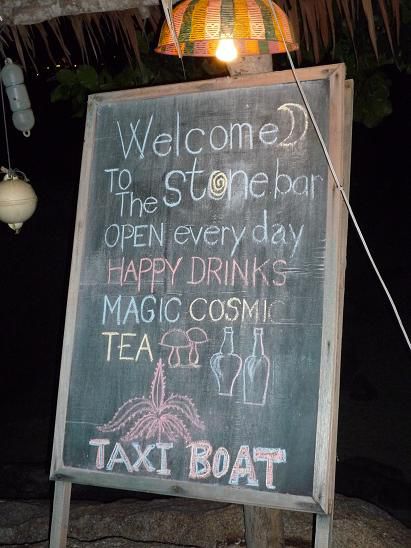 Welcome
TO The stone bar
OPEN every day
HAPPY DRINKS
MAGIC COSMIC
TEA
TAXI BOAT